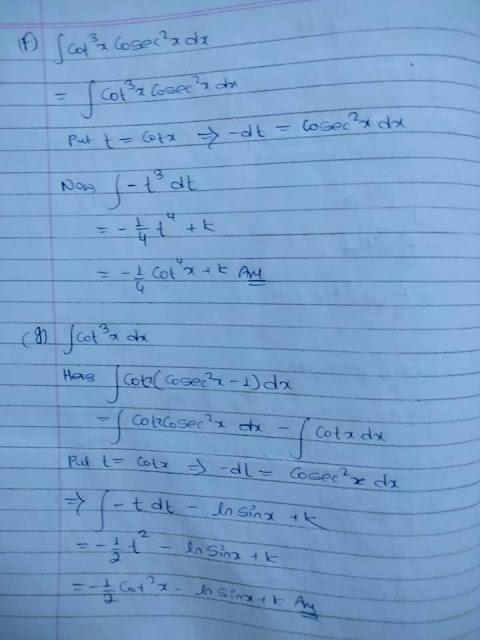 (f) ∫Cot³x Cosec²x dx
= ∫Cot³x Cosec²x dx
Put t = Cotx ⇒ -dt = Cosec²x dx
Now ∫-t³ dt
= -1/4 t⁴ + k
= -1/4 Cot⁴x + k Ans
(g) ∫Cot³x dx
Here ∫Cotx(Cosec²x - 1)dx
= ∫CotxCosec²x dx - ∫Cotx dx
Put t = Cotx ⇒ -dt = Cosec²x dx
⇒ ∫-t dt - lnSinx + k
= -1/2 t² - lnSinx + k
= -1/2 Cot²x - lnSinx + k Ans